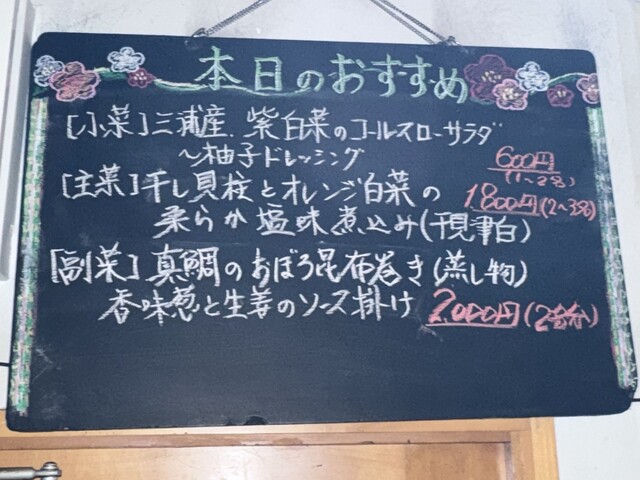 本日のおすすめ
[小菜]三浦産.紫白菜のコールスローサラダ
～柚子ドレッシング
600円
(1～2名)
[主菜]干し貝柱とオレンジ白菜の
1800円(2～3名)
柔らか塩味煮込み(干現津白)
[副菜]真鯛のおぼろ昆布巻き(蒸し物)
香味葱と生姜のソース掛け
2,000円(2台分)